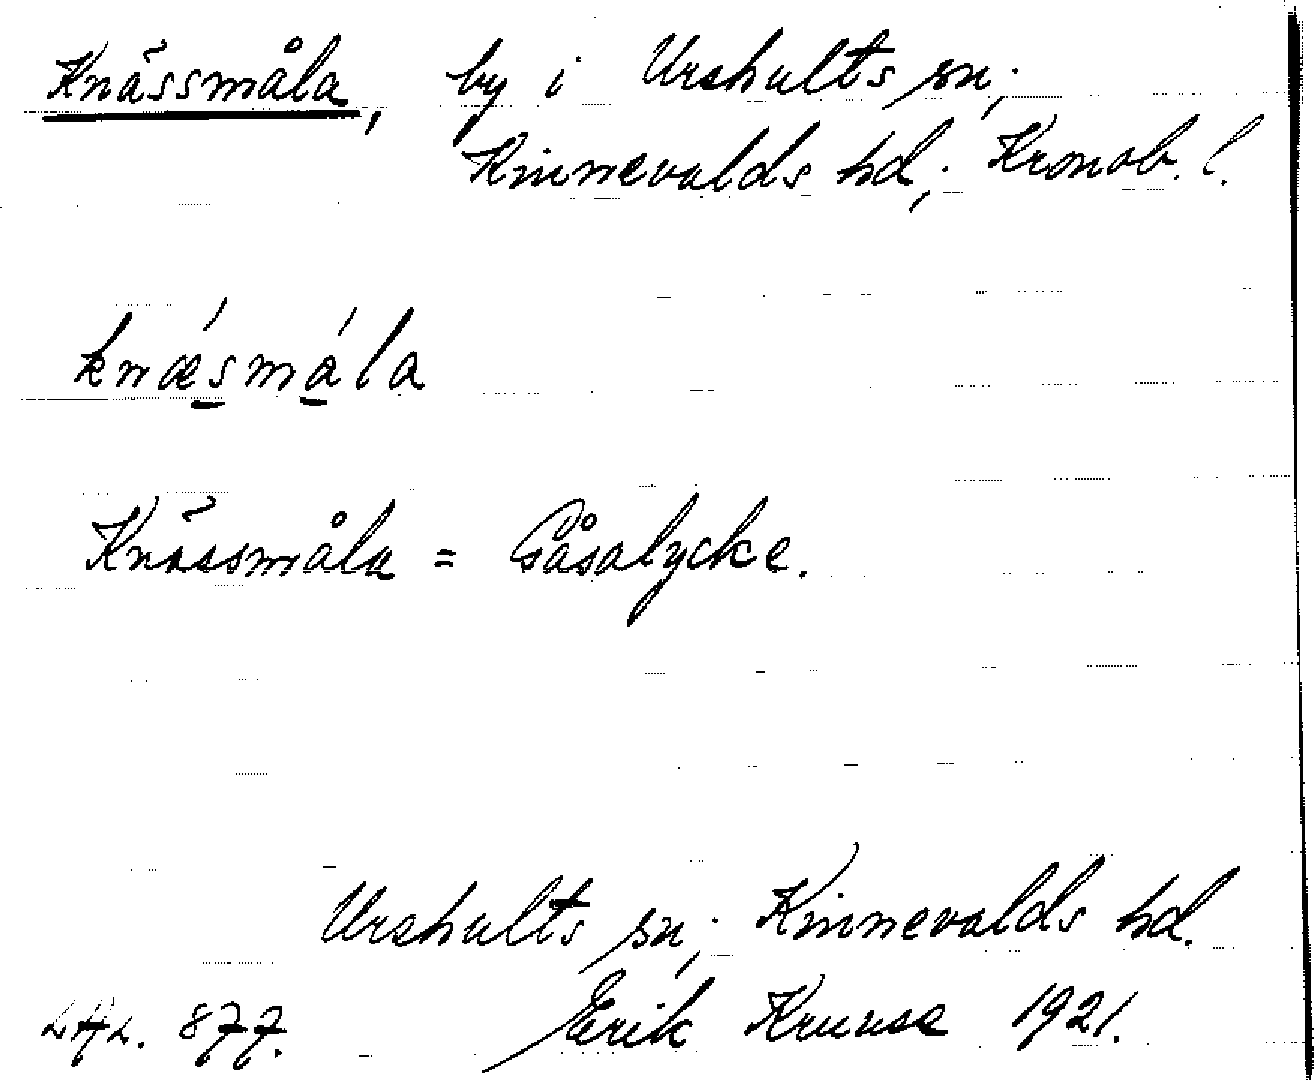 Knässmåla, by i Urshults sn;
Kinnevalds hd; Kronob. l.
knæ̲śmá̲la
Knässmåla = Gåsalycke.
Urshults sn; Kinnevalds hd.
877. Erik Kruuse 1921.